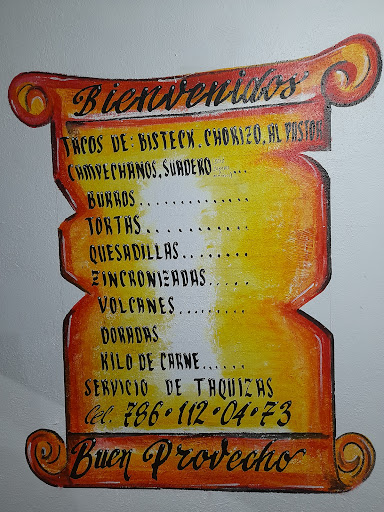 Bienvenidos
TACOS DE: BISTECK, CHORIZO, AL PASTOR
CAMPECHANOS, SUADERO....
BURROS...............
TORTAS............
QUESADILLAS........
ZINCRONIZADAS.....
VOLCANES.........
DORADAS
KILO DE CARNE......
SERVICIO DE TAQUIZAS
Cel. 786•112•04•73
Buen Provecho